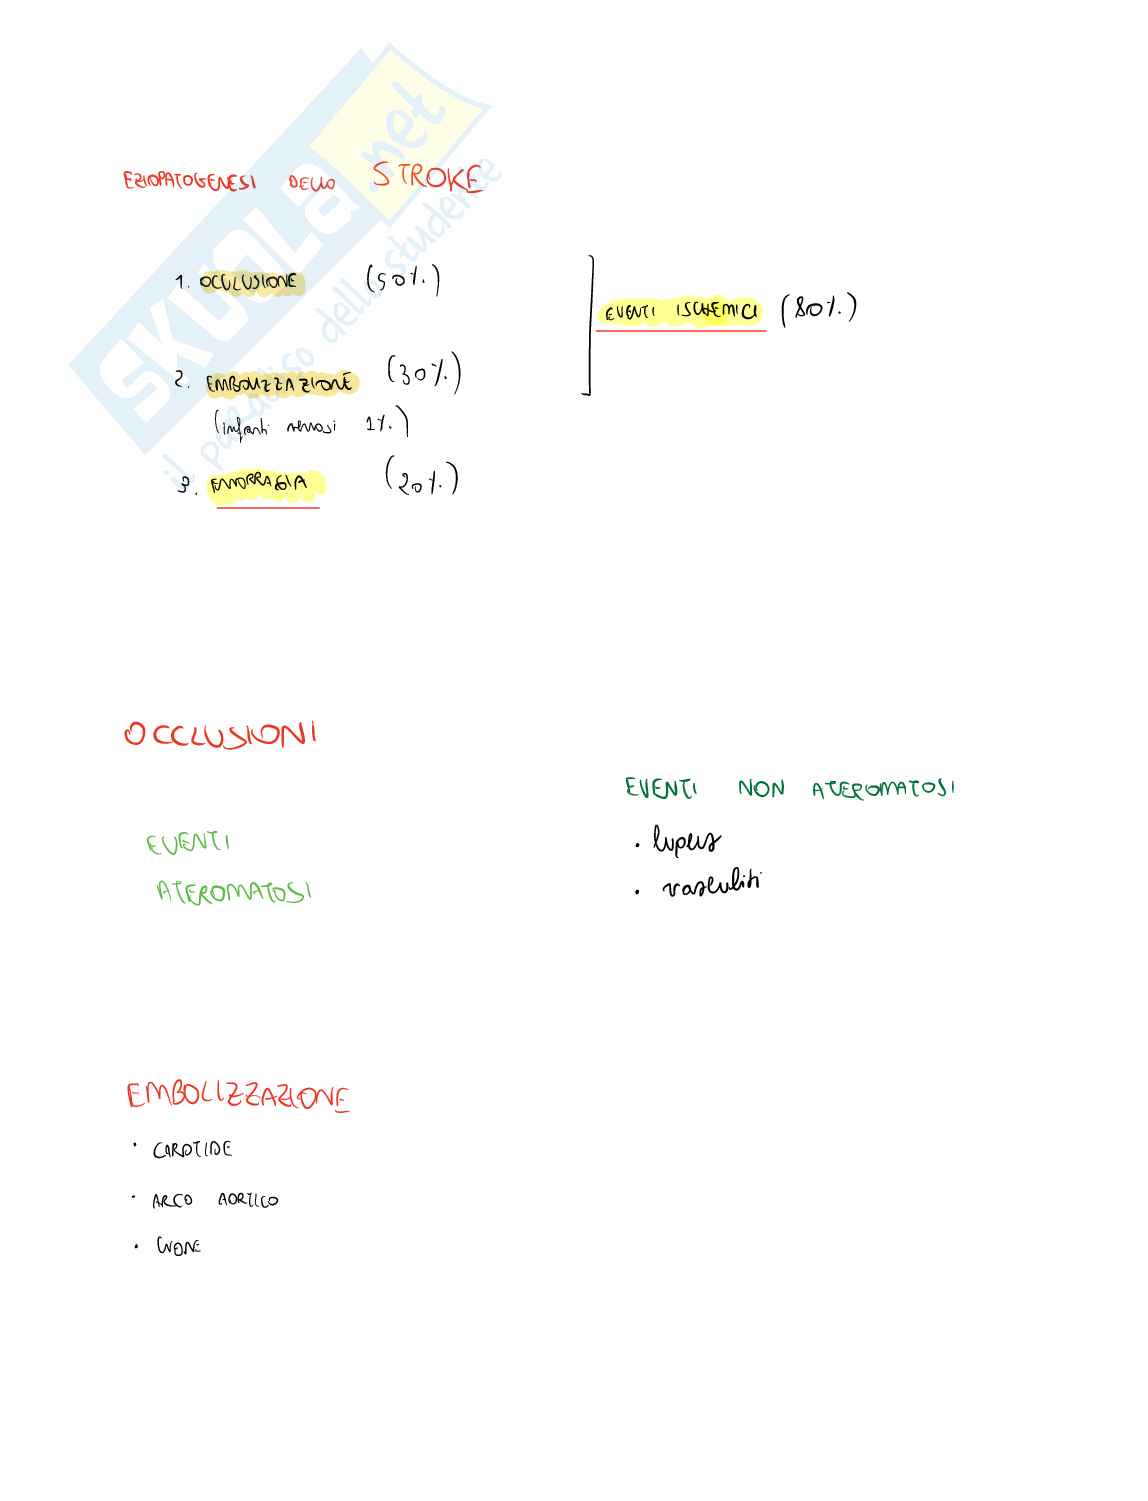 SKUOLA.net
il paradiso dello studente
EZIOPATOGENESI DELLO STROKE
1. OCCLUSIONE (50%)
EVENTI ISCHEMICI (80%)
2. EMBOLIZZAZIONE (30%)
(infarti venosi 1%)
3. EMORRAGIA (20%)
OCCLUSIONI
EVENTI NON ATEROMATOSI
EVENTI
ATEROMATOSI
• lupus
• vasculiti
EMBOLIZZAZIONE
• CAROTIDE
• ARCO AORTICO
• CUORE